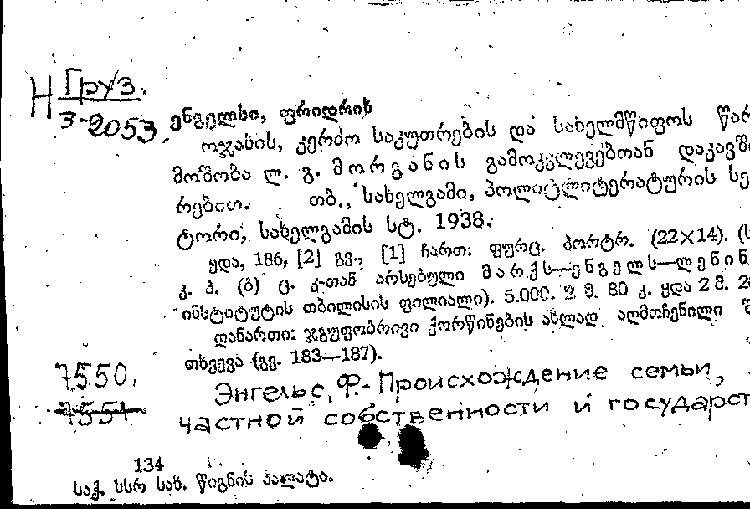 Н Груз.
3-2053
ენგელსი, ფრიდრიხ
ოჯახის, კერძო საკუთრების და სახელმწიფოს წარ
მოშობა ლ. გ. მორგანის გამოკვლევებთან დაკავში
რებით. თბ., სახელგამი, პოლიტლიტერატურის სე
ტორი, სახელგამის სტ. 1938.
ყდა, 186, [2] გვ., [1] ჩართ. ფურც. პორტრ. (22×14). (ს
კ. პ. (ბ) ც. კ-თან არსებული მარქს—ენგელს—ლენინ
ინსტიტუტის თბილისის ფილიალი). 5.000. 2 მ. 80 კ. ყდა 2 მ.
დანართი: ჯგუფობრივი ქორწინების ახლად აღმოჩენილი
თხვევა (გვ. 183—187).
7550.
7551
Энгельс, Ф.- Происхождение семьи,
частной собственности и государст
134
საქ. სსრ სახ. წიგნის პალატა.